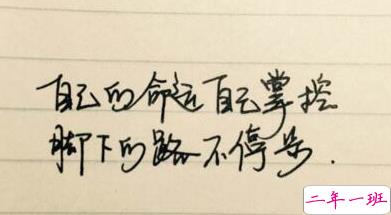 自己的命运自己掌控
脚下的路不停步.
二年一班